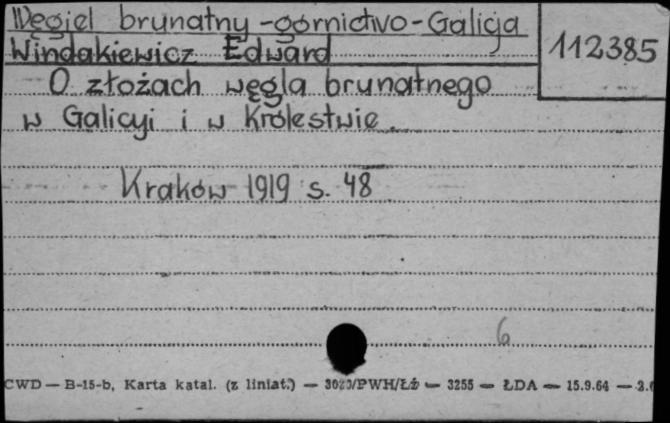 Węgiel brunatny - górnictwo - Galicja
112385
Windakiewicz Edward
O złożach węgla brunatnego
w Galicyi i w Królestwie
Kraków 1919 s. 48
6
CWD — B-15-b, Karta katal. (z liniat.) — 3020/PWH/Łź — 3255 — ŁDA — 15.9.64 —